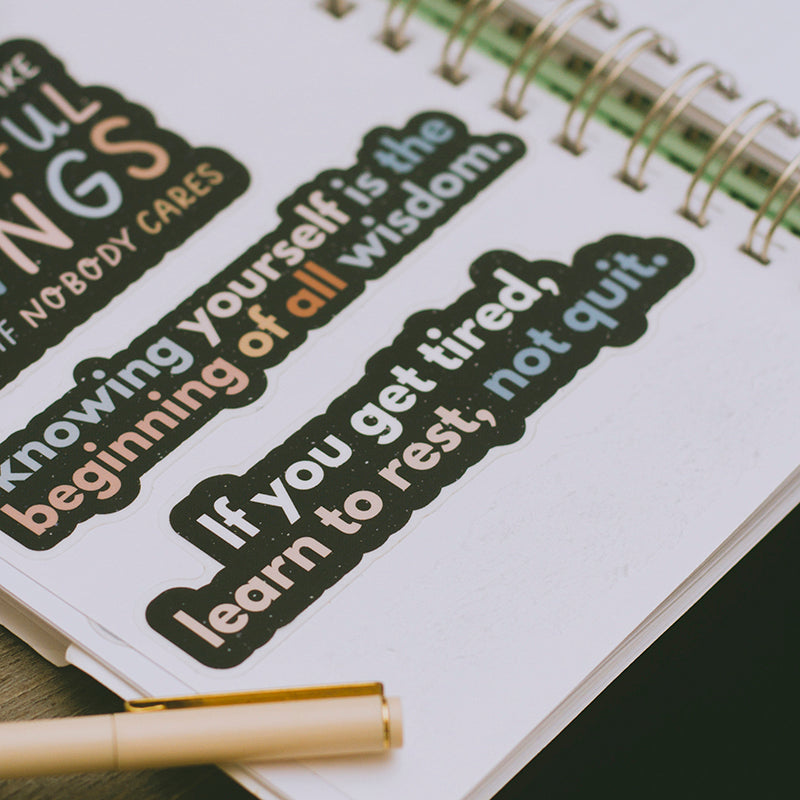 NOBODY CARES
knowing yourself is the
beginning of all wisdom.
If you get tired,
learn to rest, not quit.